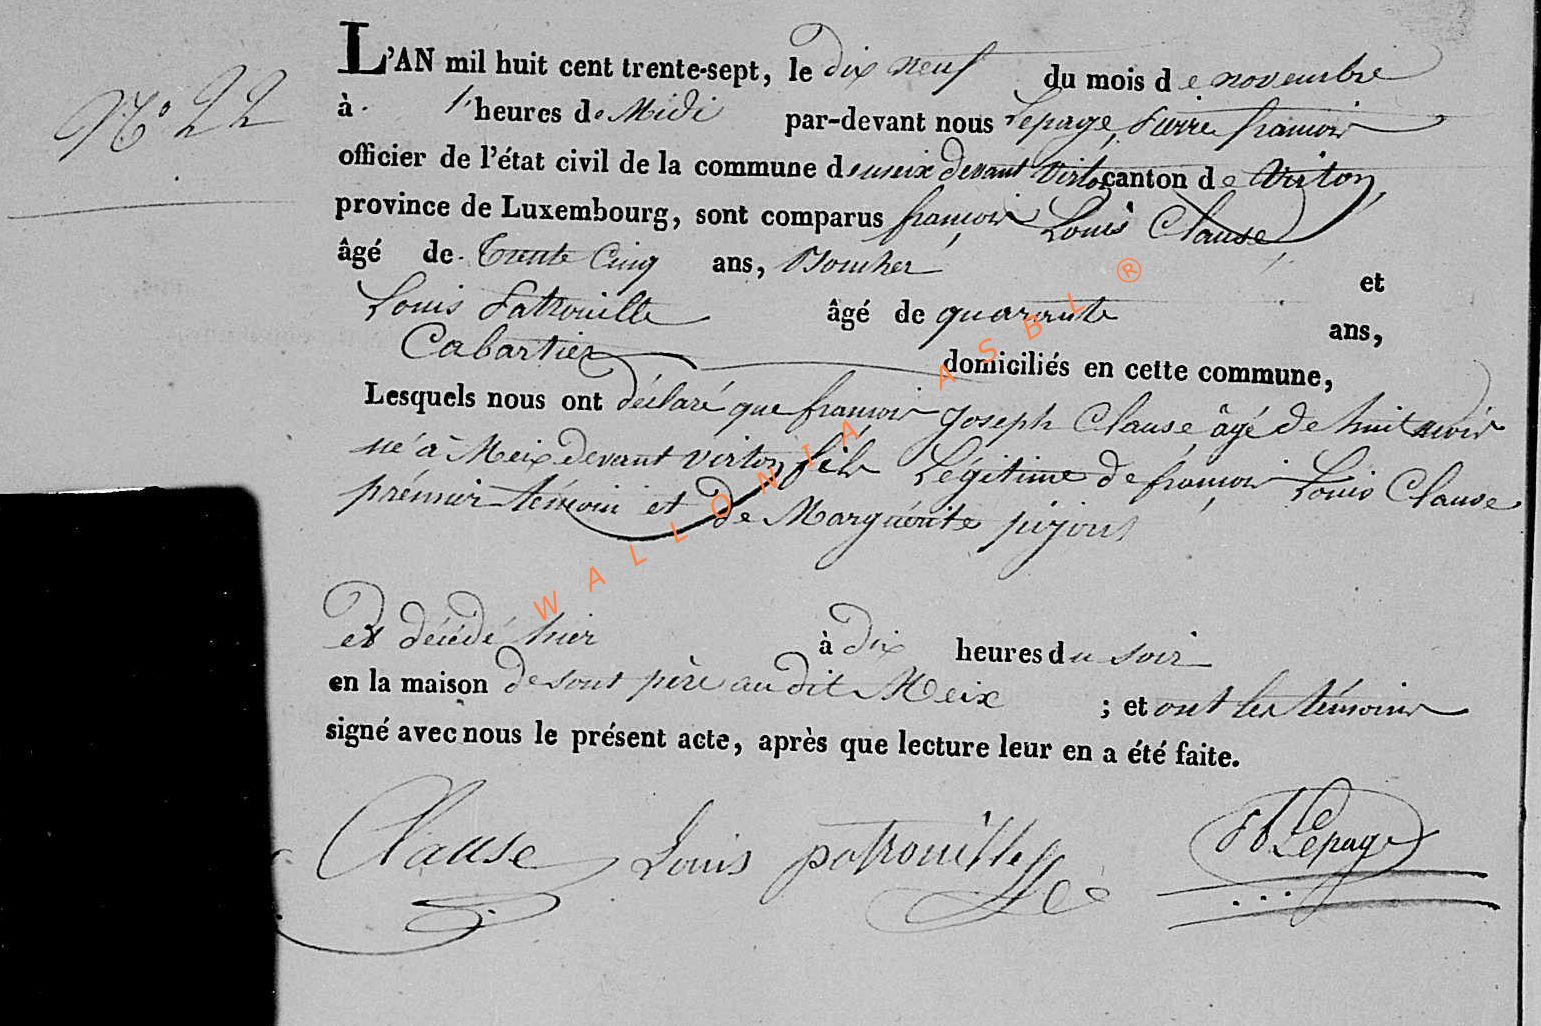 N.° 22
L'AN mil huit cent trente-sept, le dix neuf du mois de novembre
à l'heures de Midi par-devant nous Lepage, Pierre françois
officier de l'état civil de la commune de meix devant virton canton de Virton,
province de Luxembourg, sont comparus françois Louis Clause
âgé de trente Cinq ans, Boucher et
Louis Patrouille âgé de quarante ans,
Cabartier domiciliés en cette commune,
Lesquels nous ont déclaré que françois Joseph Clause âgé de huit mois
né à Meix devant virton fils Légitime de françois Louis Clause
prémier témoin et de Marguérite pijout
est décédé hier à dix heures du soir
en la maison de sont père au dit Meix ; et ont les témoins
signé avec nous le présent acte, après que lecture leur en a été faite.
Clause Louis patrouille PF Lepage
WALLONIA ASBL ®